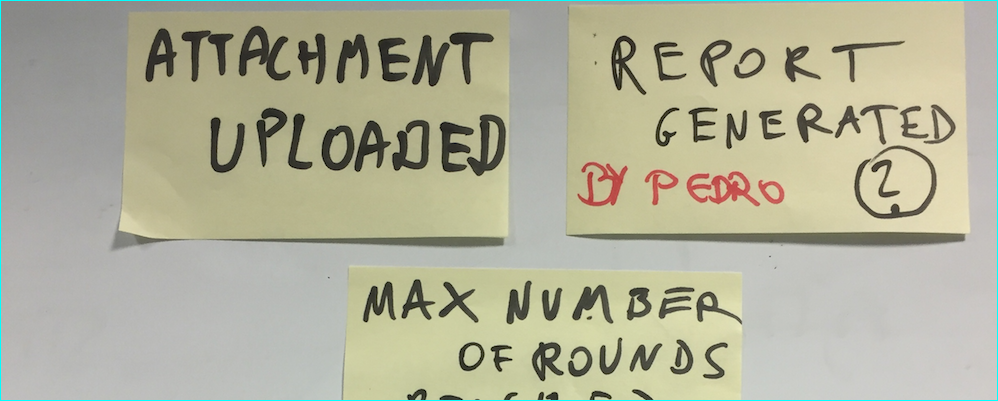 ATTACHMENT
UPLOADED
REPORT
GENERATED
BY PEDRO
2
MAX NUMBER
OF ROUNDS